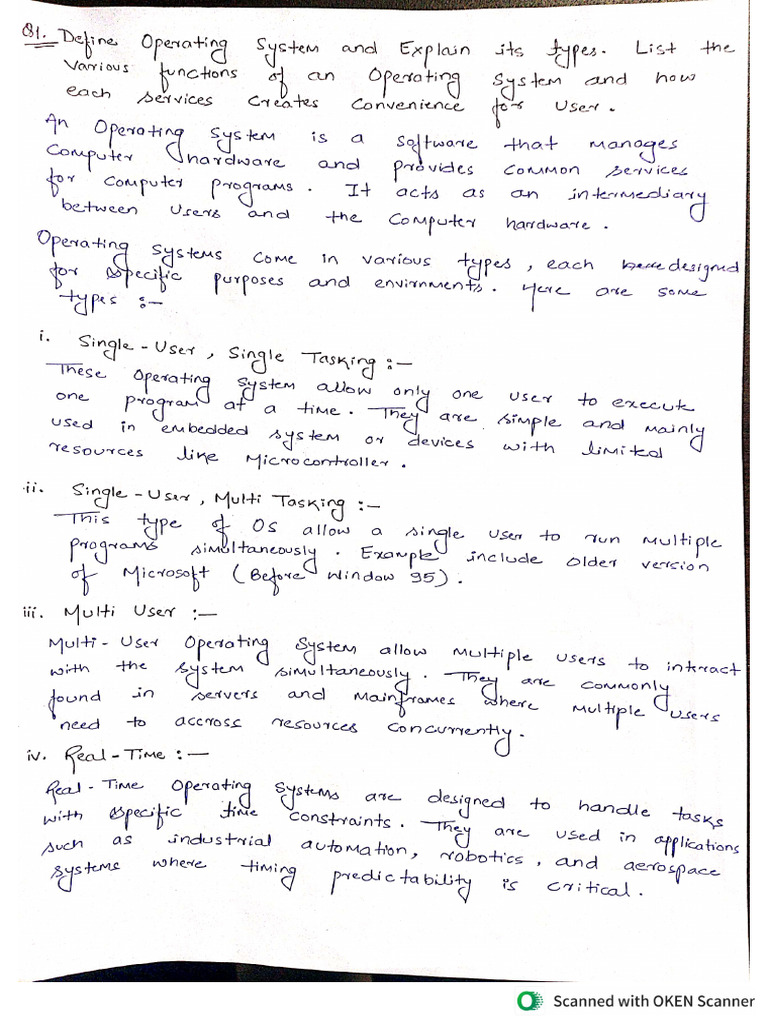 Q1. Define Operating System and Explain its types. List the
various functions of an Operating System and how
each services creates convenience for user.
An Operating System is a software that manages
Computer hardware and provides common services
for computer programs. It acts as an intermediary
between users and the computer hardware.
Operating Systems come in various types, each designed
for specific purposes and envirnments. Here are some
types :-
i. Single-User, Single Tasking :-
These Operating System allow only one user to execute
one program at a time. They are simple and mainly
used in embedded system or devices with limited
resources like Microcontroller.
ii. Single-User, Multi Tasking :-
This type of OS allow a single user to run multiple
programs simultaneously. Example include older version
of Microsoft (Before Window 95).
iii. Multi User :-
Multi-User Operating System allow multiple users to interact
with the system simultaneously. They are commonly
found in servers and mainframes where multiple users
need to accross resources concurrently.
iv. Real-Time :-
Real-Time Operating Systems are designed to handle tasks
with specific time constraints. They are used in applications
such as industrial automation, robotics, and aerospace
systems where timing predictability is critical.
Scanned with OKEN Scanner